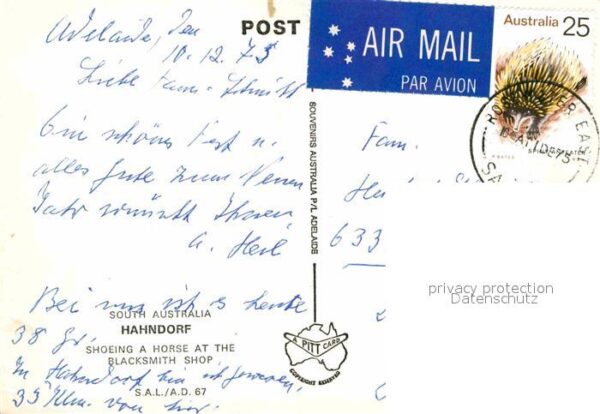 POST
AIR MAIL
PAR AVION
Australia 25
SPINY ANTEATER
Adelaide, den
10.12.75
Liebe Fam. Schmitt
Ein schönes Fest u.
alles Gute zum Neuen
Jahr wünscht Ihnen
Bei uns ist es heute
38 Gr.
In Hahndorf bin ich gewesen,
33 Klm. von hier.
SOUTH AUSTRALIA
HAHNDORF
SHOEING A HORSE AT THE
BLACKSMITH SHOP
S.A.L./A.D. 67
SOUVENIRS AUSTRALIA P/L ADELAIDE
A PITT CARD
COPYRIGHT RESERVED
Fam.
633
privacy protection
Datenschutz